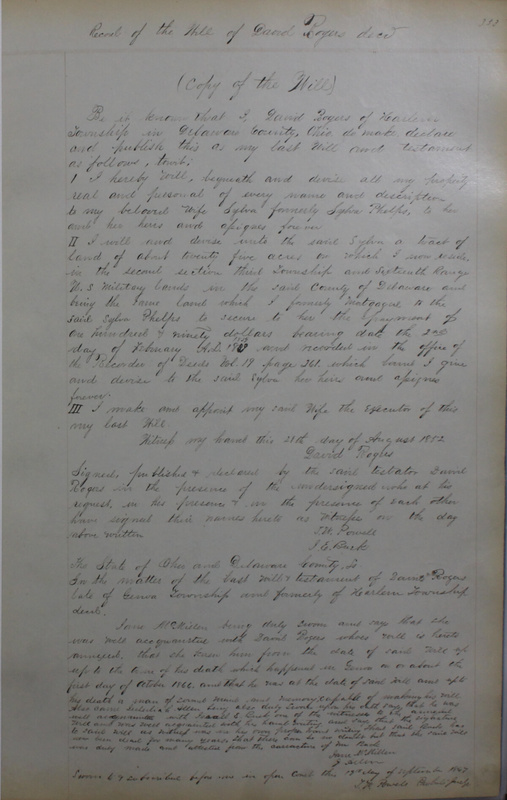 Record of the Will of David Rogers decd
(Copy of the Will)
Be it known that I, David Rogers of Harlem
Township in Delaware County, Ohio do make declare
and publish this as my last Will and testament
as follows, towit;
1 I hereby Will, bequeath and devise all my property
real and personal of every name and description
to my beloved Wife Sylva formerly Sylva Phelps, to her
and her heirs and assigns forever
II I will and devise unto the said Sylva a tract of
land of about twenty five acres on which I now reside
in the second section third Township and Sixteenth Range
U.S Military lands in the said County of Delaware and
being the same land which I formerly Mortgaged to the
said Sylva Phelps to secure to her the payment of
one hundred & ninety dollars bearing date the 2nd
day of February A.D. and recorded in the office of
the Recorder of Deeds Vol. 19 page 361. which land I give
and devise to the said Sylva her heirs and assigns
forever.
III I make and appoint my said Wife the Executor of this
my last Will.
Witness my hand this 28th day of August 1852
David Rogers
Signed, published & declared by the said testator David
Rogers in the presence of the undersigned who at his
request, in his presence & in the presence of each other
have signed their names hereto as Witnesses on the day
above written
T.W. Powell
J. E. Buck
The State of Ohio and Delaware County, ss
In the matter of the Last Will & testament of David Rogers
late of Genoa Township and formerly of Harlem Township
decd.
Jane McMillen being duly sworn and says that she
was well acquainted with David Rogers whose will is hereto
annexed, that she knew him from the date of said Will up
up to the time of his death which happened in Genoa on or about the
first day of October 1866. and that he was at the date of said Will and up to
his death a man of sound mind and memory, capable of making his Will
Also came being also duly sworn upon his oath says that he was
well acquainted with one of the witnesses of the annexed
Will and was well acquainted with his hand writing and says that the signature
to said Will as witness is in his own proper hand writing
for many years, that there can be no doubt but that the said Will
was duly made and
Jane McMillen
Sworn to & subscribed before me in open Court this day of September 1867
T. W. Powell Probate Judge